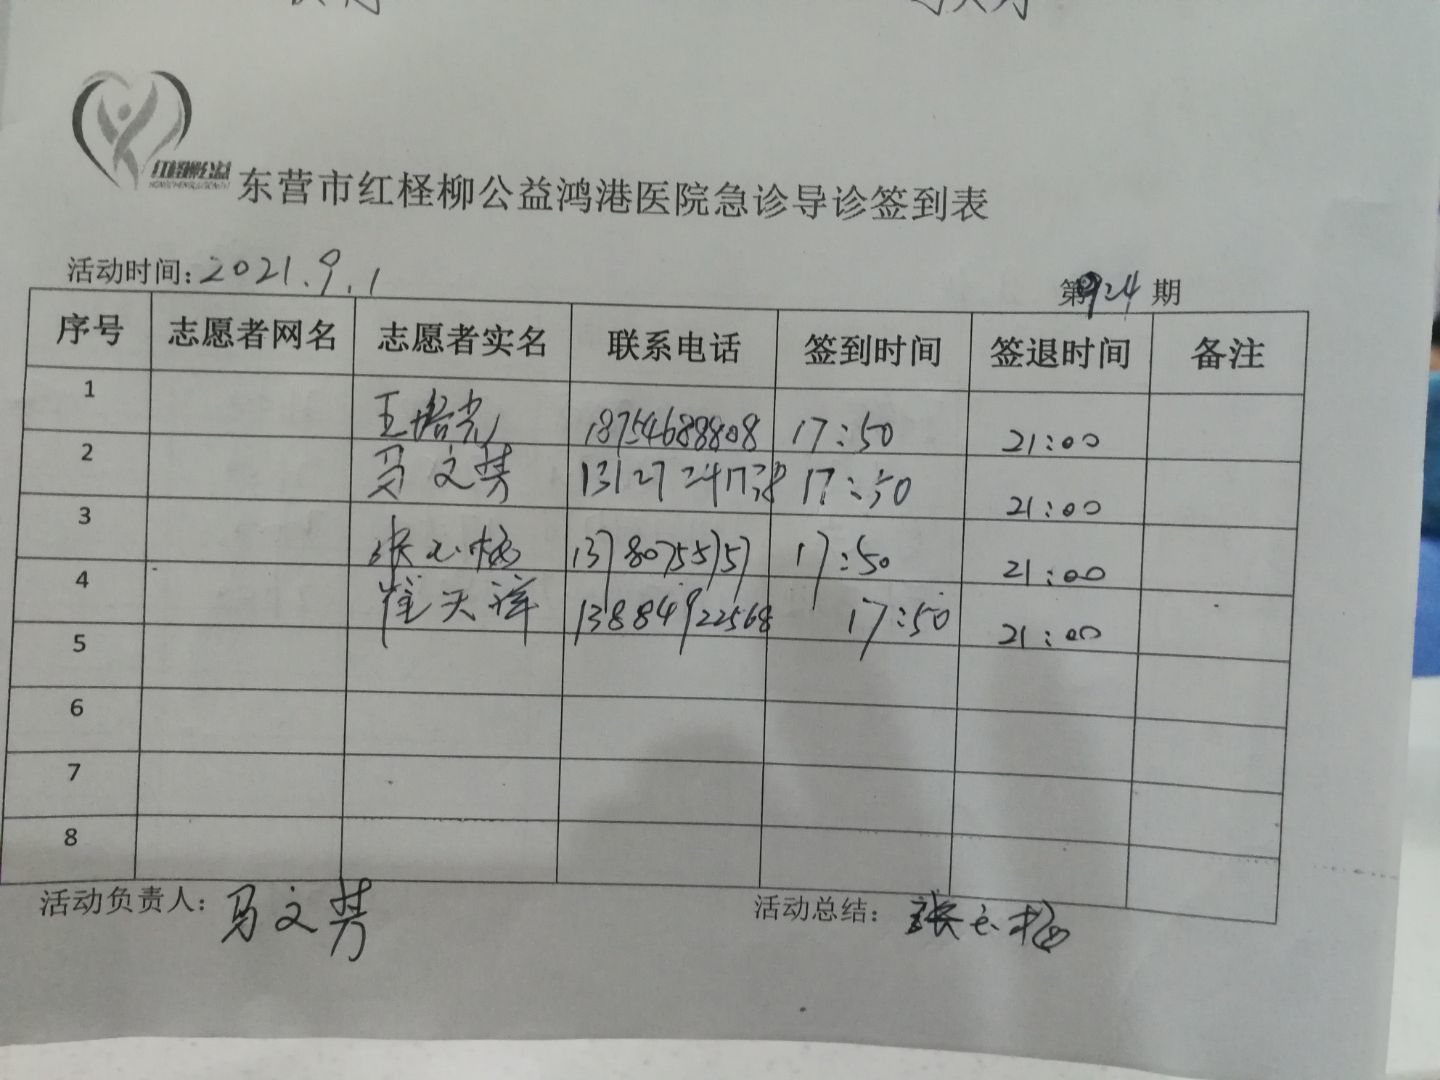 红柽柳公益
东营市红柽柳公益鸿港医院急诊导诊签到表
活动时间:2021.9.1
第924期
序号 志愿者网名 志愿者实名 联系电话 签到时间 签退时间 备注
1 王培光 18754688808 17:50 21:00
2 马文芳 17:50 21:00
3 13780755757 17:50 21:00
4 崔天祥 13884922568 17:50 21:00
5
6
7
8
活动负责人:马文芳
活动总结: